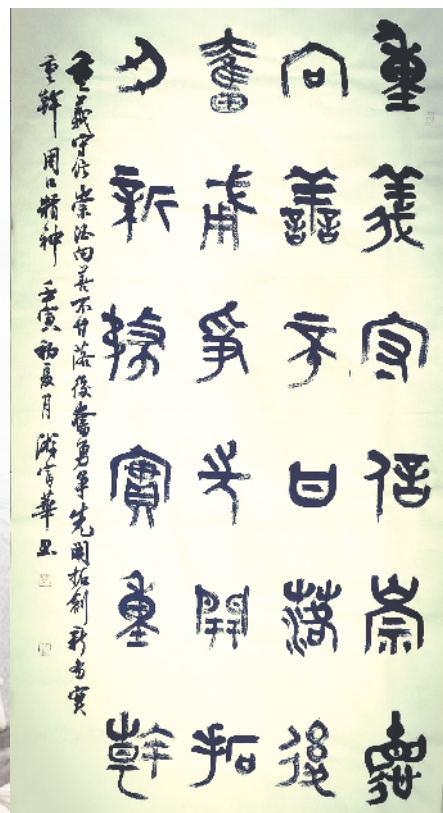 重義守信崇德
向善不甘落後
奮勇爭先開拓
刅新務實重幹
重義守信崇德向善不甘落後奮勇爭先開拓創新务实
重幹 周口精神 壬寅初夏月 華书